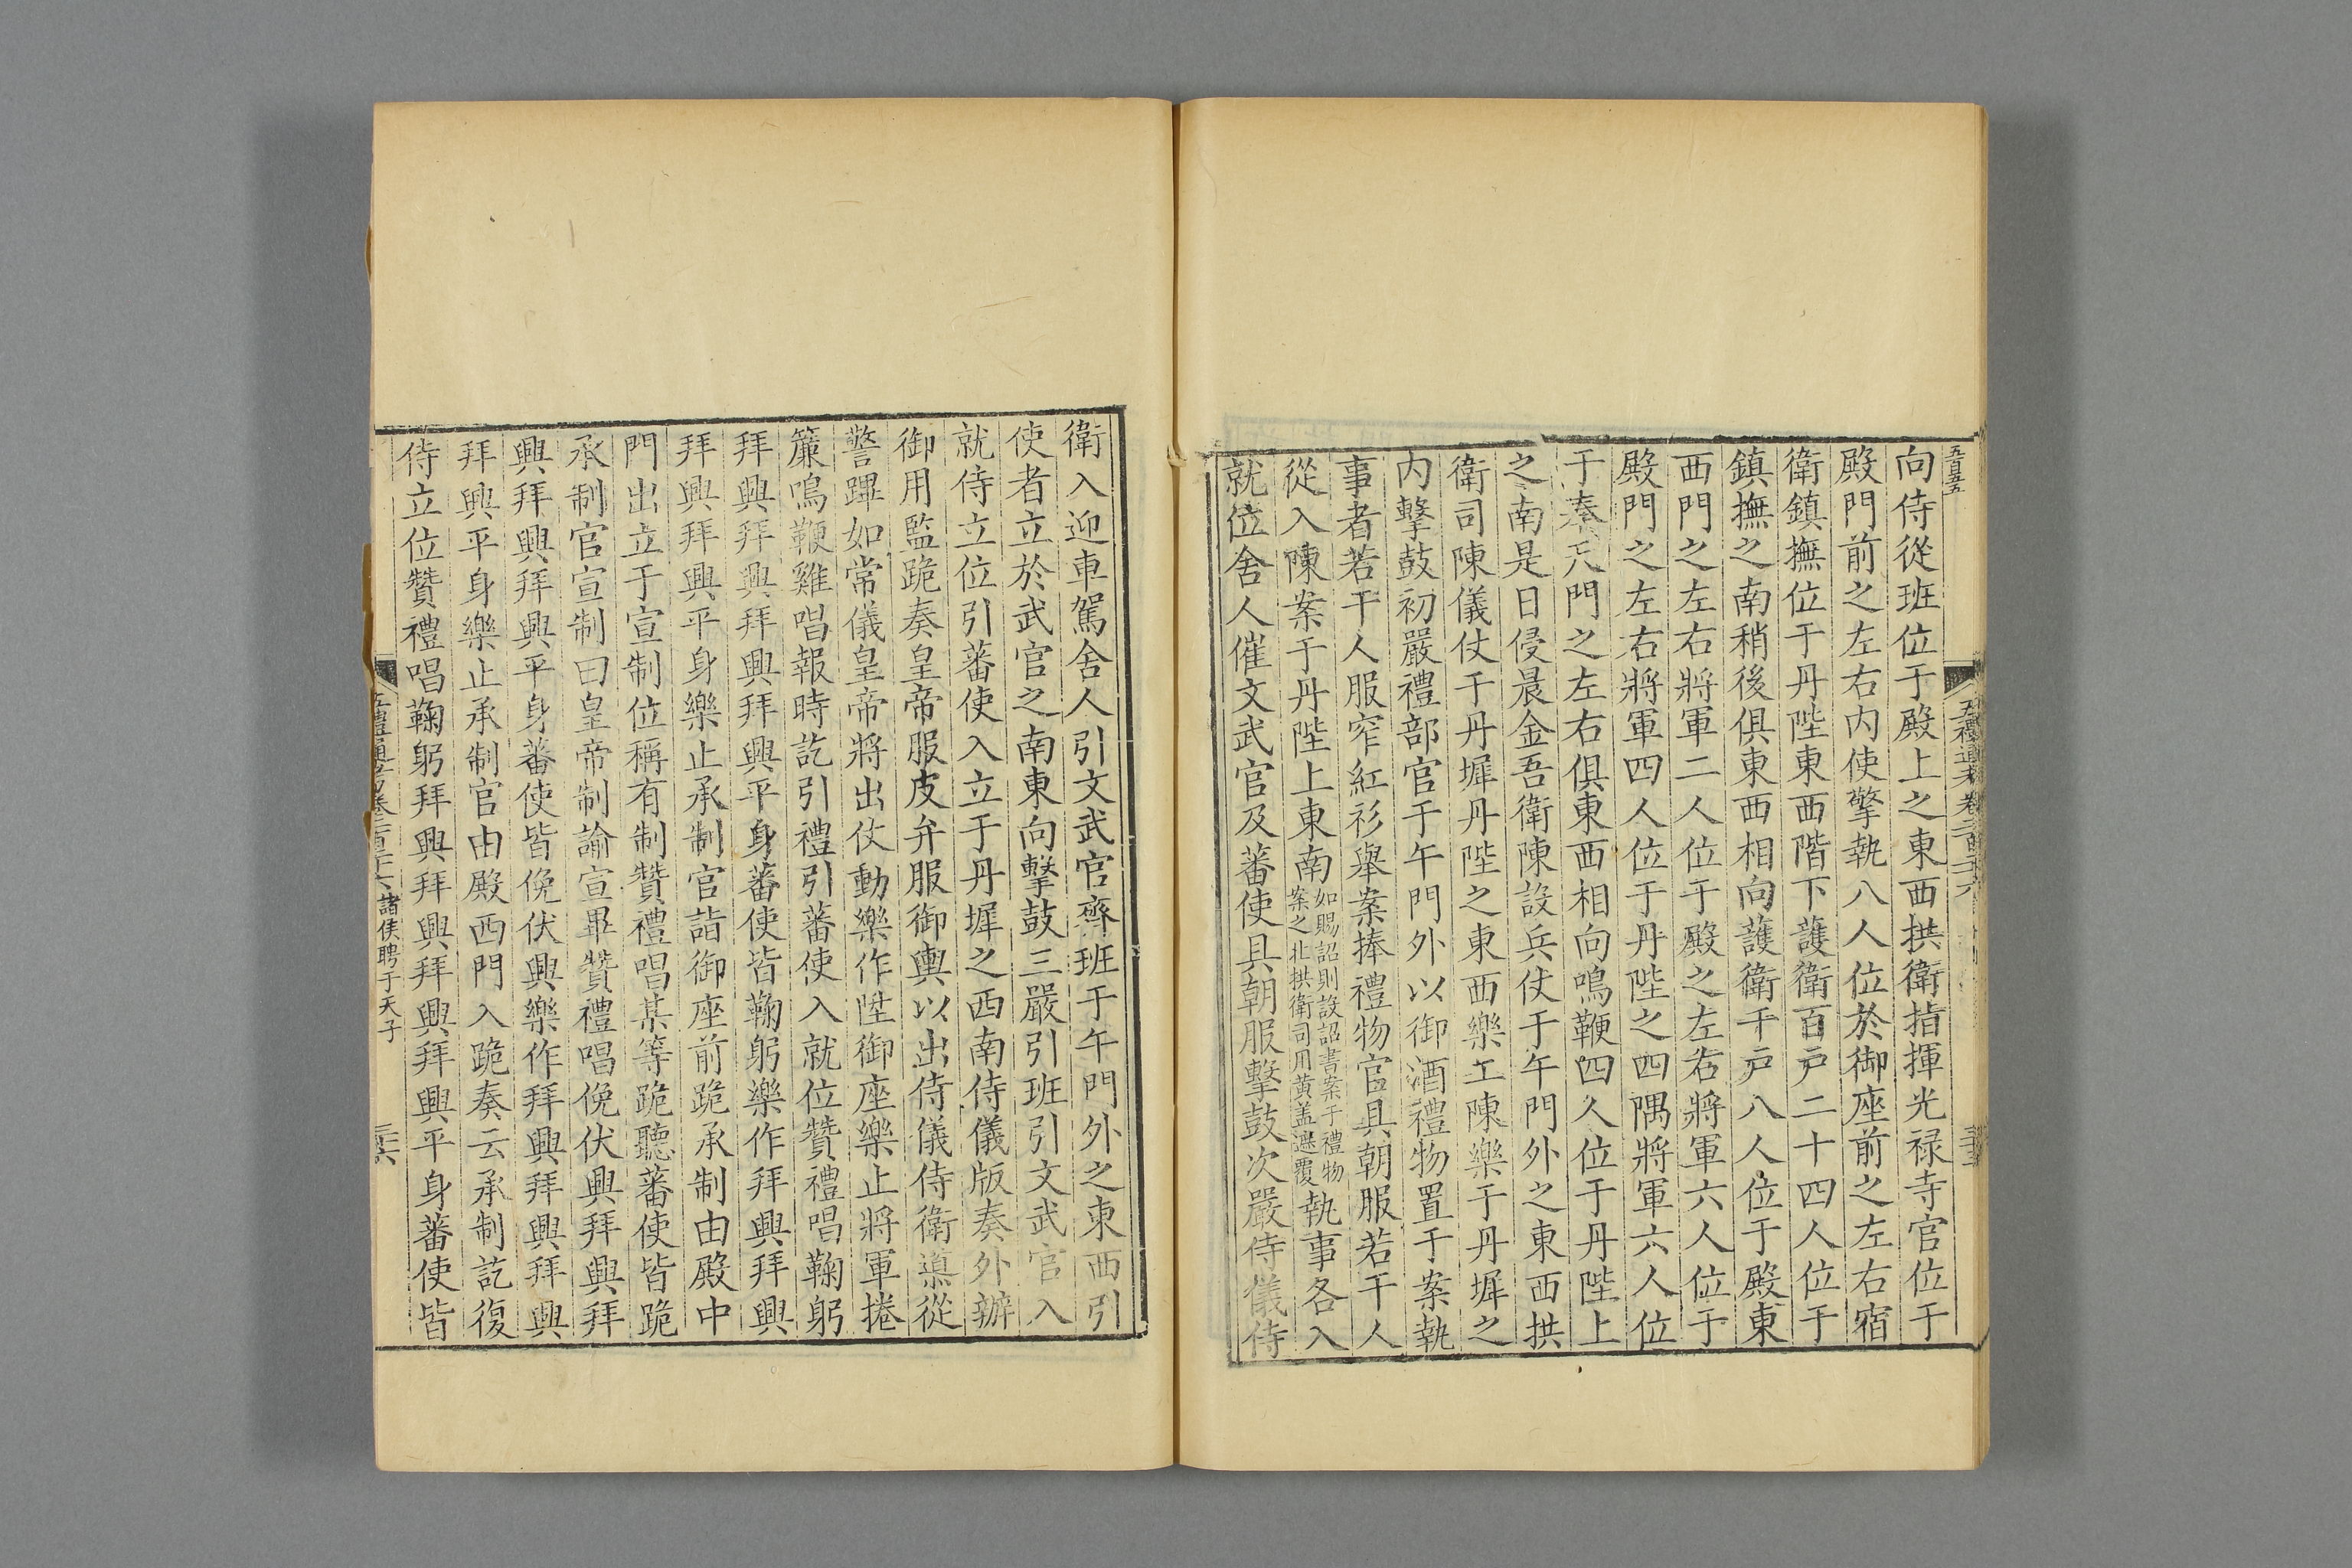 五百五五
五禮通考卷二百二十六
向侍從班位于殿上之東西拱衛指揮光禄寺官位于
殿門前之左右内使擎執八人位於御座前之左右宿
衛鎮撫位于丹陛東西階下護衛百戸二十四人位于
鎮撫之南稍後俱東西相向護衛千戸八人位于殿東
西門之左右將軍二人位于殿之左右將軍六人位于
殿門之左右將軍四人位于丹陛之四隅將軍六人位
于奉天門之左右俱東西相向鳴鞭四人位于丹陛上
之南是日侵晨金吾衛陳設兵仗于午門外之東西拱
衛司陳儀仗于丹墀丹陛之東西樂工陳樂于丹墀之
内擊鼓初嚴禮部官于午門外以御酒禮物置于案執
事者若干人服窄紅衫舉案捧禮物官具朝服若干人
從入陳案于丹陛上東南如賜詔則設詔書案于禮物案之北拱衛司用黄盖遮覆執事各入
就位舍人催文武官及蕃使具朝服擊鼓次嚴侍儀侍
衛入迎車駕舍人引文武官齊班于午門外之東西引
使者立於武官之南東向擊鼓三嚴引班引文武官入
就侍立位引蕃使入立于丹墀之西南侍儀版奏外辦
御用監跪奏皇帝服皮弁服御輿以出侍儀侍衛導從
警蹕如常儀皇帝將出仗動樂作陞御座樂止將軍捲
簾鳴鞭雞唱報時訖引禮引蕃使入就位贊禮唱鞠躬
拜興拜興拜興拜興平身蕃使皆鞠躬樂作拜興拜興
拜興拜興平身樂止承制官詣御座前跪承制由殿中
門出立于宣制位稱有制贊禮唱某等跪聽蕃使皆跪
承制官宣制曰皇帝制諭宣畢贊禮唱俛伏興拜興拜
興拜興拜興平身蕃使皆俛伏興樂作拜興拜興拜興
拜興平身樂止承制官由殿西門入跪奏云承制訖復
侍立位贊禮唱鞠躬拜興拜興拜興拜興平身蕃使皆
五禮通考卷二百二十六 諸侯聘于天子
三六